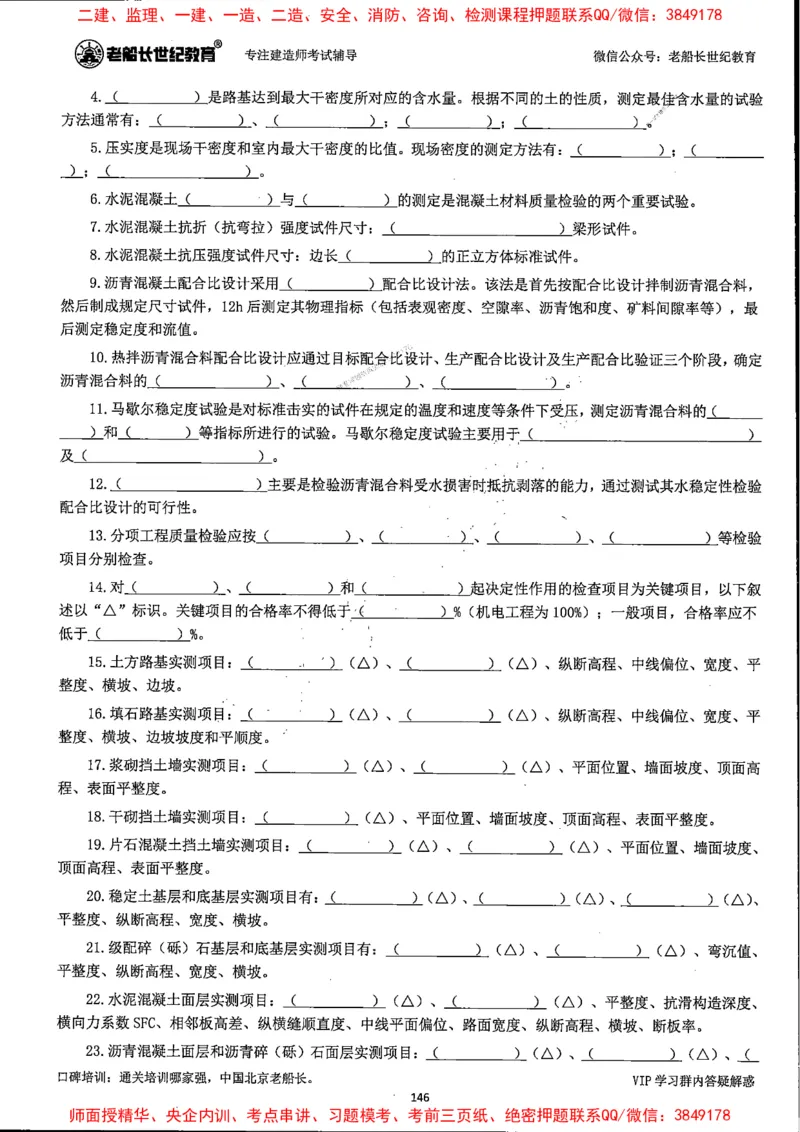 二建、监理、一建、一造、二造、安全、消防、咨询、检测课程押题联系QQ/微信：3849178
老船长世纪教育® 专注建造师考试辅导 微信公众号：老船长世纪教育
4.（ ）是路基达到最大干密度所对应的含水量。根据不同的土的性质，测定最佳含水量的试验
方法通常有：（ ）、（ ）；（ ）；（ ）。
5.压实度是现场干密度和室内最大干密度的比值。现场密度的测定方法有：（ ）；（
）；（ ）。
6.水泥混凝土（ ）与（ ）的测定是混凝土材料质量检验的两个重要试验。
7.水泥混凝土抗折（抗弯拉）强度试件尺寸：（ ）梁形试件。
8.水泥混凝土抗压强度试件尺寸：边长（ ）的正立方体标准试件。
9.沥青混凝土配合比设计采用（ ）配合比设计法。该法是首先按配合比设计拌制沥青混合料，
然后制成规定尺寸试件，12h后测定其物理指标（包括表观密度、空隙率、沥青饱和度、矿料间隙率等），最
后测定稳定度和流值。
10.热拌沥青混合料配合比设计应通过目标配合比设计、生产配合比设计及生产配合比验证三个阶段，确定
沥青混合料的（ ）、（ ）、（ ）。
11.马歇尔稳定度试验是对标准击实的试件在规定的温度和速度等条件下受压，测定沥青混合料的（
）和（ ）等指标所进行的试验。马歇尔稳定度试验主要用于（ ）
及（ ）。
12.（ ）主要是检验沥青混合料受水损害时抵抗剥落的能力，通过测试其水稳定性检验
配合比设计的可行性。
13.分项工程质量检验应按（ ）、（ ）、（ ）、（ ）等检验
项目分别检查。
14.对（ ）、（ ）和（ ）起决定性作用的检查项目为关键项目，以下叙
述以“△”标识。关键项目的合格率不得低于（ ）%（机电工程为100%）；一般项目，合格率应不
低于（ ）%。
15.土方路基实测项目：（ ）（△）、（ ）（△）、纵断高程、中线偏位、宽度、平
整度、横坡、边坡。
16.填石路基实测项目：（ ）（△）、（ ）（△）、纵断高程、中线偏位、宽度、平
整度、横坡、边坡坡度和平顺度。
17.浆砌挡土墙实测项目：（ ）（△）、（ ）（△）、平面位置、墙面坡度、顶面高
程、表面平整度。
18.干砌挡土墙实测项目：（ ）（△）、平面位置、墙面坡度、顶面高程、表面平整度。
19.片石混凝土挡土墙实测项目：（ ）（△）、（ ）（△）、平面位置、墙面坡度、
顶面高程、表面平整度。
20.稳定土基层和底基层实测项目有：（ ）（△）、（ ）（△）、（ ）（△）、
平整度、纵断高程、宽度、横坡。
21.级配碎（砾）石基层和底基层实测项目有：（ ）（△）、（ ）（△）、弯沉值、
平整度、纵断高程、宽度、横坡。
22.水泥混凝土面层实测项目：（ ）（△）、（ ）（△）、平整度、抗滑构造深度、
横向力系数SFC、相邻板高差、纵横缝顺直度、中线平面偏位、路面宽度、纵断高程、横坡、断板率。
23.沥青混凝土面层和沥青碎（砾）石面层实测项目：（ ）（△）、（ ）（△）、（
口碑培训：通关培训哪家强，中国北京老船长。 VIP学习群内答疑解惑
146
师面授精华、央企内训、考点串讲、习题模考、考前三页纸、绝密押题联系QQ/微信：3849178